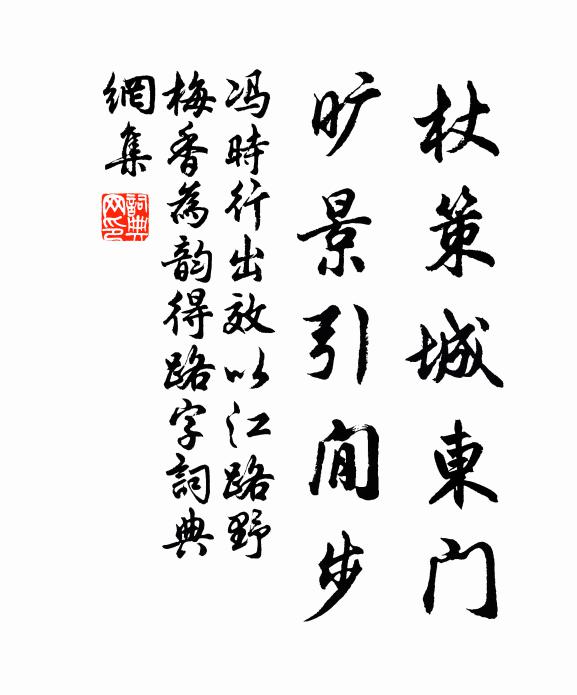 杖策城東门
旷景引閒步
冯時行出效以江路野
梅香為韵得路字詞典
網集
詞典网印